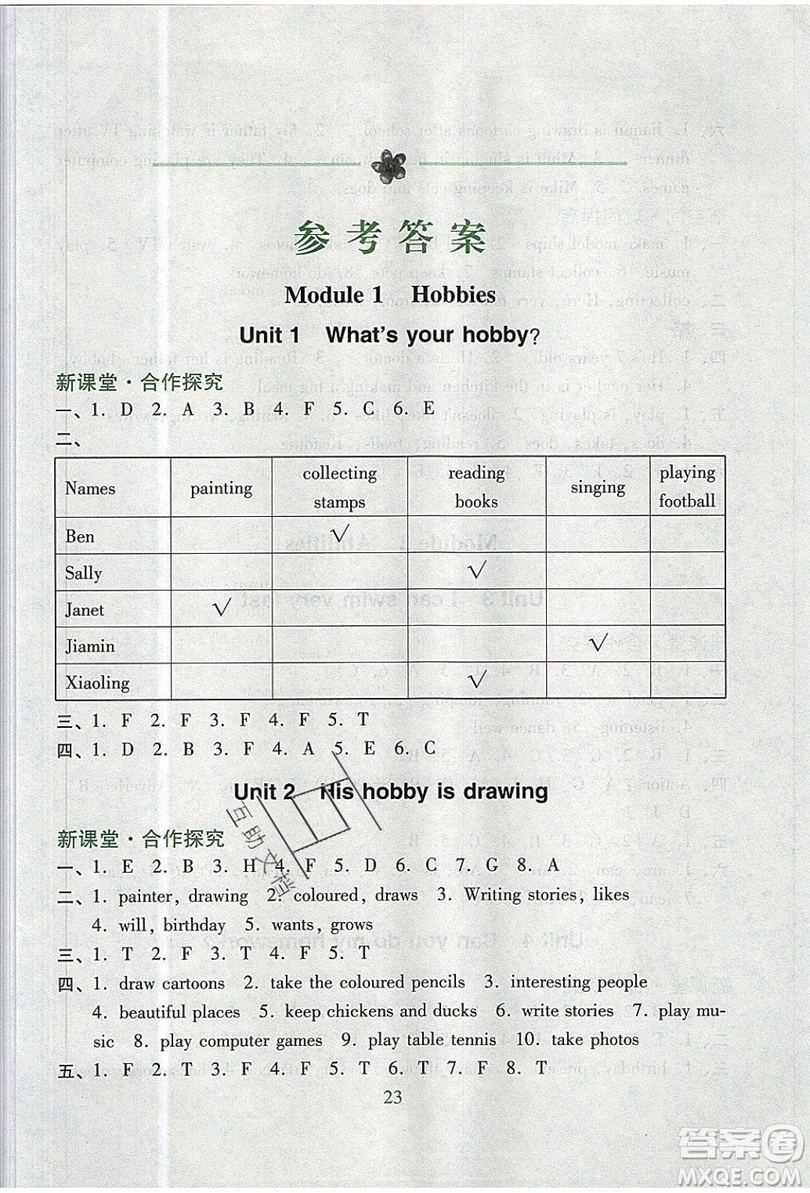 参考答案
Module 1 Hobbies
Unit 1 What's your hobby?
新课堂·合作探究
一、1. D 2. A 3. B 4. F 5. C 6. E
二、
Names painting collecting stamps reading books singing playing football
Ben √
Sally √
Janet √
Jiamin √
Xiaoling √
三、1. F 2. F 3. F 4. F 5. T
四、1. D 2. B 3. F 4. A 5. E 6. C
Unit 2 His hobby is drawing
新课堂·合作探究
一、1. E 2. B 3. H 4. F 5. D 6. C 7. G 8. A
二、1. painter, drawing 2. coloured, draws 3. Writing stories, likes
4. will, birthday 5. wants, grows
三、1. T 2. F 3. T 4. F 5. T
四、1. draw cartoons 2. take the coloured pencils 3. interesting people
4. beautiful places 5. keep chickens and ducks 6. write stories 7. play mu-
sic 8. play computer games 9. play table tennis 10. take photos
五、1. F 2. T 3. F 4. F 5. T 6. T 7. F 8. T
23
互助文档
答案圈
MXQE.COM